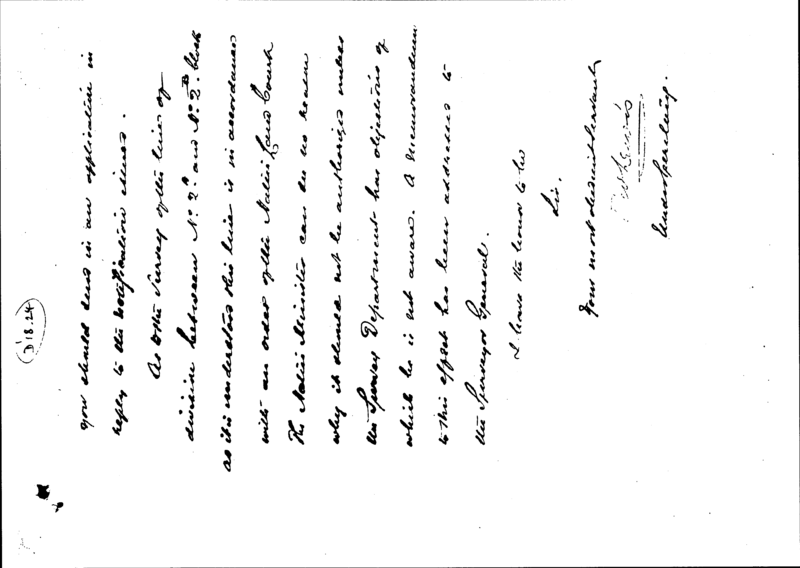 D18.24
you should send in an application in
reply to the notification issued.
As to the Survey of the line of
division between No. 2A and No. 2B block
as it is understood this line is in accordance
with an order of the Native Land Court
The Native Minister can see no reason
why it should not be authorised unless
the Survey Department has objections of
which he is not aware. A memorandum
to this effect has been addressed to
the Surveyor General.
I have the honor to be
Sir.
Your most obedient servant
Lewis
Under Secretary.